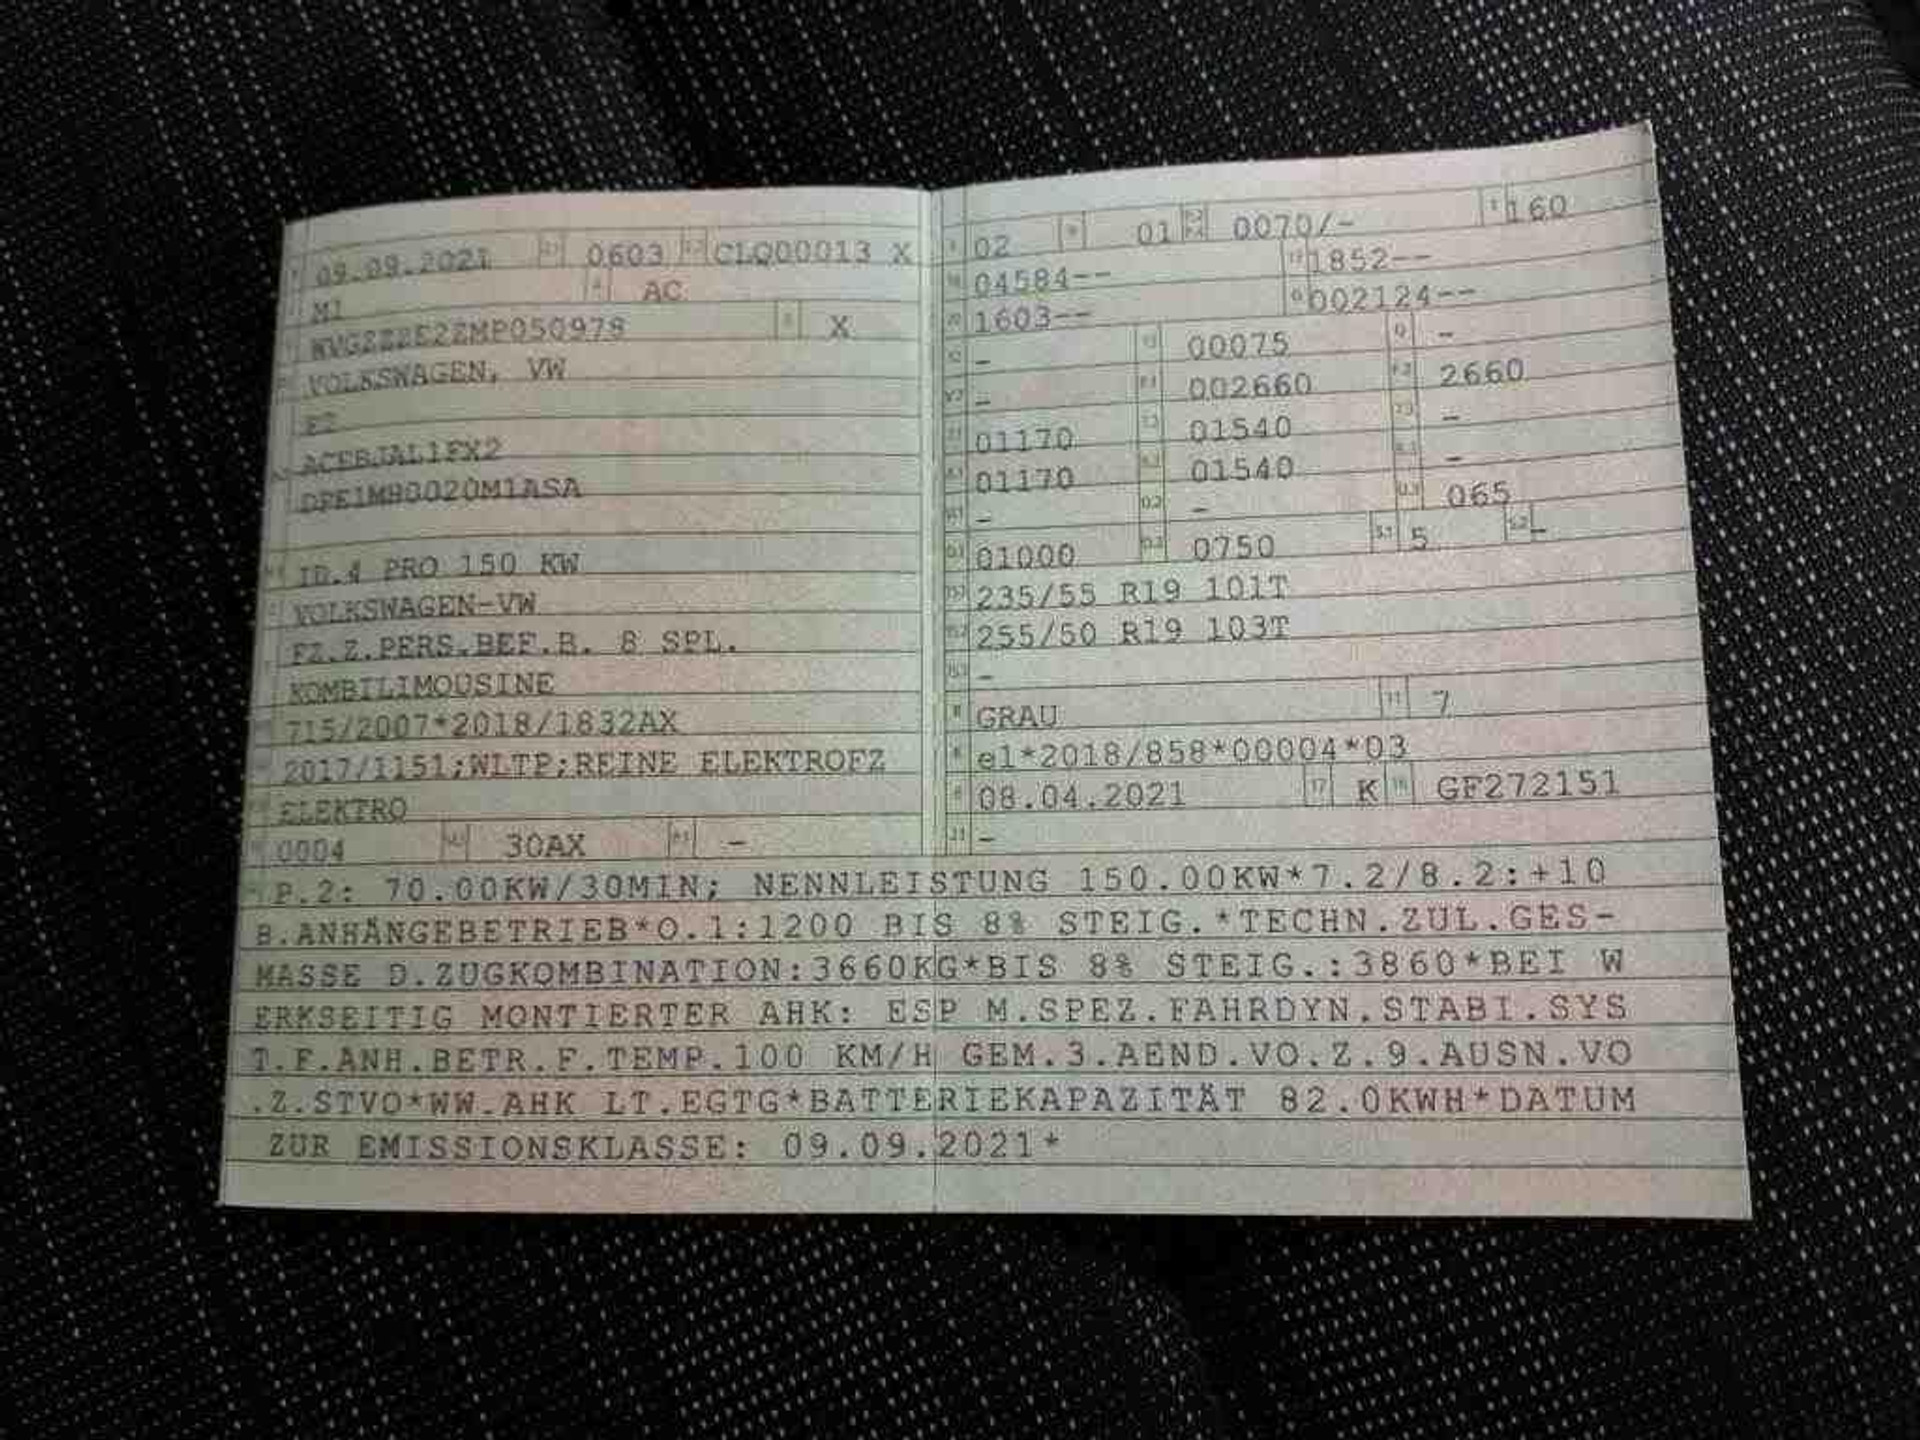 09.09.2021 2.1 0603 2.2 CLQ00013 X
M1 4 AC
WVGZZZE2ZMP050978 3 X
VOLKSWAGEN, VW
E2
ACEBJAL1FX2
DPE1MB0020M1ASA
ID.4 PRO 150 KW
VOLKSWAGEN-VW
FZ.Z.PERS.BEF.B. 8 SPL.
KOMBILIMOUSINE
715/2007*2018/1832AX
2017/1151;WLTP;REINE ELEKTROFZ
ELEKTRO
0004 30AX -
02 9 01 0070/- 160
04584-- 1852--
1603-- G 002124--
- 00075 Q -
- F.1 002660 F.2 2660
01170 01540 -
01170 01540 -
- U.2 - U.3 065
O.1 01000 O.2 0750 S.1 5 S.2 -
235/55 R19 101T
255/50 R19 103T
15.3 -
R GRAU 11 7
K e1*2018/858*00004*03
6 08.04.2021 17 K 16 GF272151
21 -
P.2: 70.00KW/30MIN; NENNLEISTUNG 150.00KW*7.2/8.2:+10
B.ANHÄNGEBETRIEB*O.1:1200 BIS 8% STEIG.*TECHN.ZUL.GES-
MASSE D.ZUGKOMBINATION:3660KG*BIS 8% STEIG.:3860*BEI W
ERKSEITIG MONTIERTER AHK: ESP M.SPEZ.FAHRDYN.STABI.SYS
T.F.ANH.BETR.F.TEMP.100 KM/H GEM.3.AEND.VO.Z.9.AUSN.VO
.Z.STVO*WW.AHK LT.EGTG*BATTERIEKAPAZITÄT 82.0KWH*DATUM
ZUR EMISSIONSKLASSE: 09.09.2021*